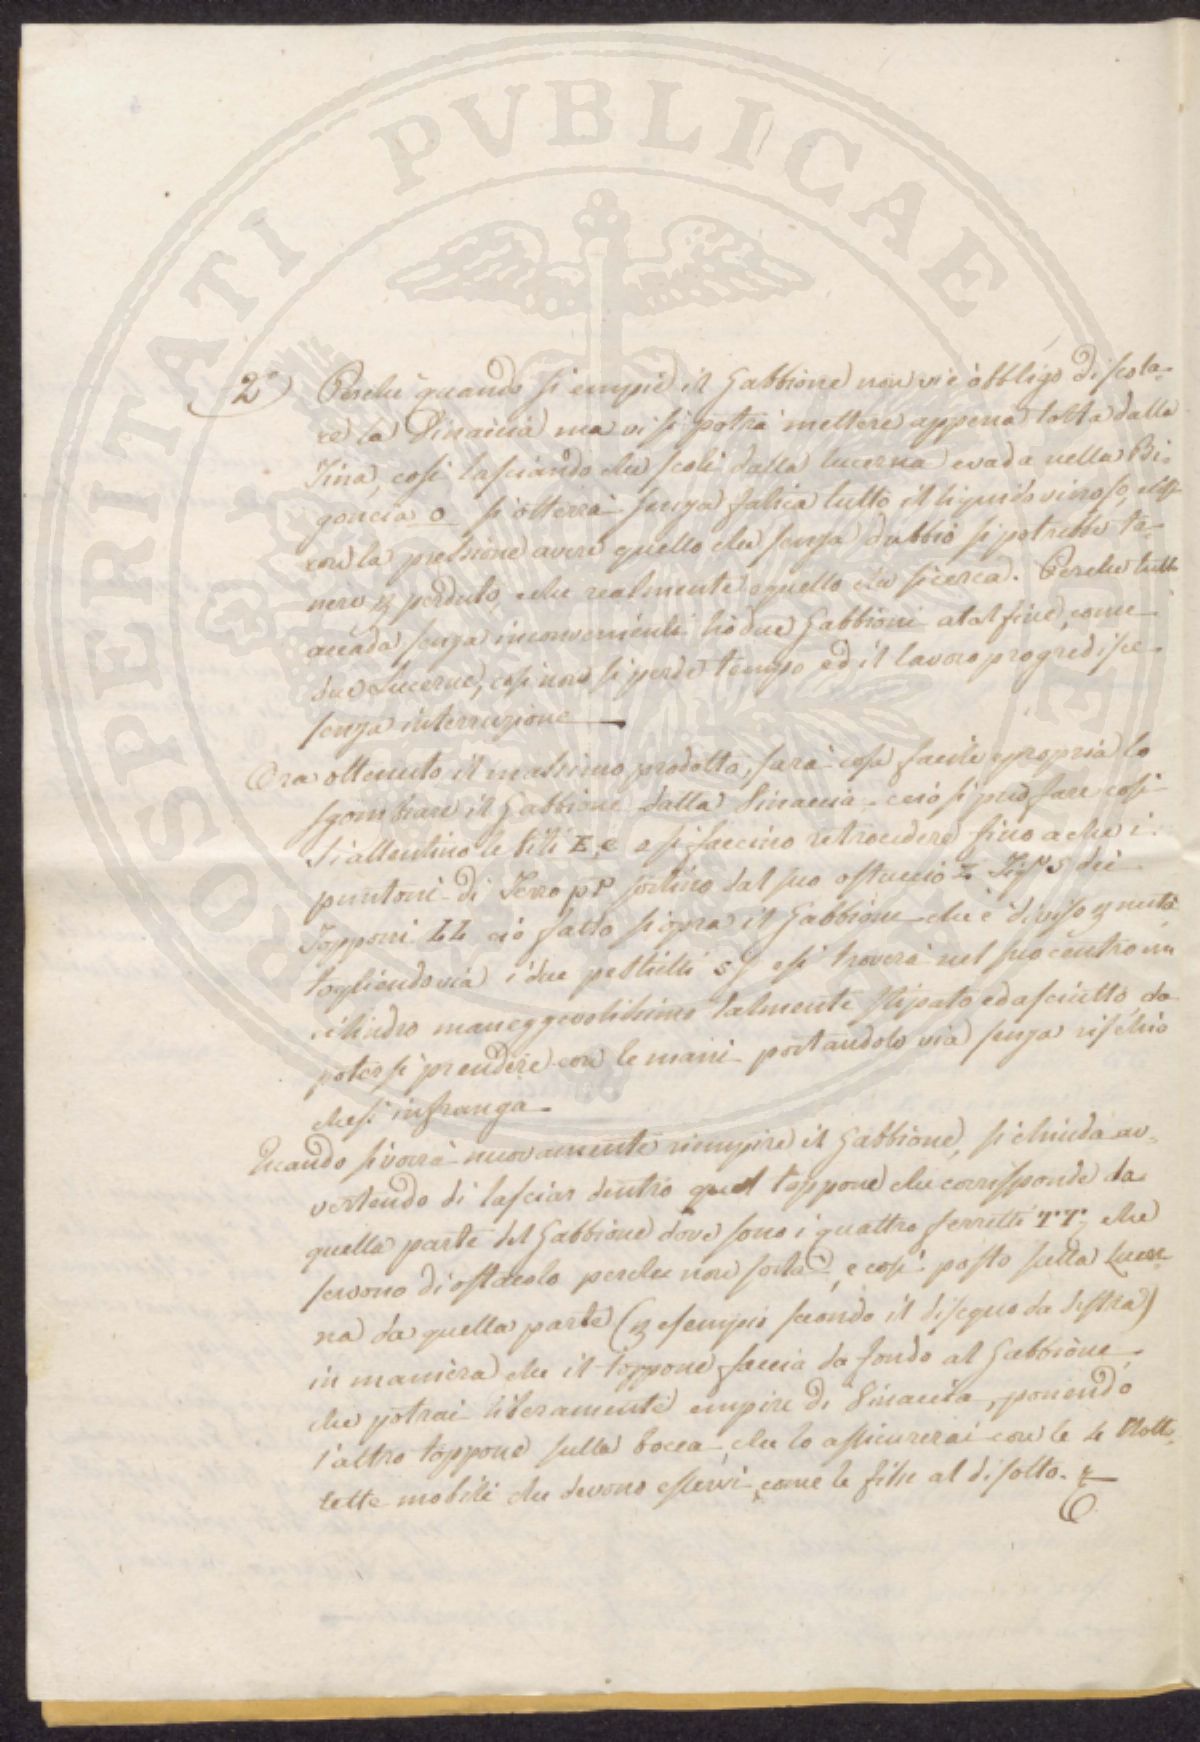 PROSPERITATI PVBLICAE
2° Perche quando si empie il Gabbione non vi è obbligo di scola-
re la Vinaccia ma vi si potrà mettere appena tolta dalla
Tina, così lasciando che scoli dalla lucerna e vada nella Bi-
goncia o si otterrà senza fatica tutto il liquido vinoso, e
con la pressione avere quello che senza dubbio si potrebbe te-
nere p perduto, e che realmente e quello che si cerca. Perche tutto
accada senza inconvenienti hò due Gabbioni a tal fine, come
due Lucerne, così non si perde tempo ed il lavoro progredisce
senza interruzione
Ora ottenuto il massimo prodotto, sarà cosa facile e propria lo
sgombrare il Gabbione dalla Vinaccia e ciò si può fare così
Si allentino le viti E,e e si faccino retrocedere fino a che i
puntoni di Ferro p P sortino dal suo ostaccio z Fig.ª 5 dei
Topponi LL ciò fatto si opra il Gabbione che e diviso p metà
togliendo via i due pestielli sſ e si troverà nel suo centro un
cilindro maneggevolissimo talmente stipato ed asciutto, da
potersi prendere con le mani portandolo via senza rischio
che si infranga.
Quando si vorrà nuovamente riempire il Gabbione, si chiuda av-
vertendo di lasciar dentro quel toppone che corrisponde da
quella parte del Gabbione dove sono i quattro ferretti TT, che
servono di ostacolo perche non sorta, e così posto sulla Lucer-
na da quella parte (p esempio secondo il disegno da destra)
in maniera che il toppone faccia da fondo al Gabbione,
che potrai liberamente empire di Vinaccia, ponendo
l'altro toppone sulla bocca, che lo assicurerai con le 4 Nott-
tette mobili che devono esservi come le fisse al di sotto.